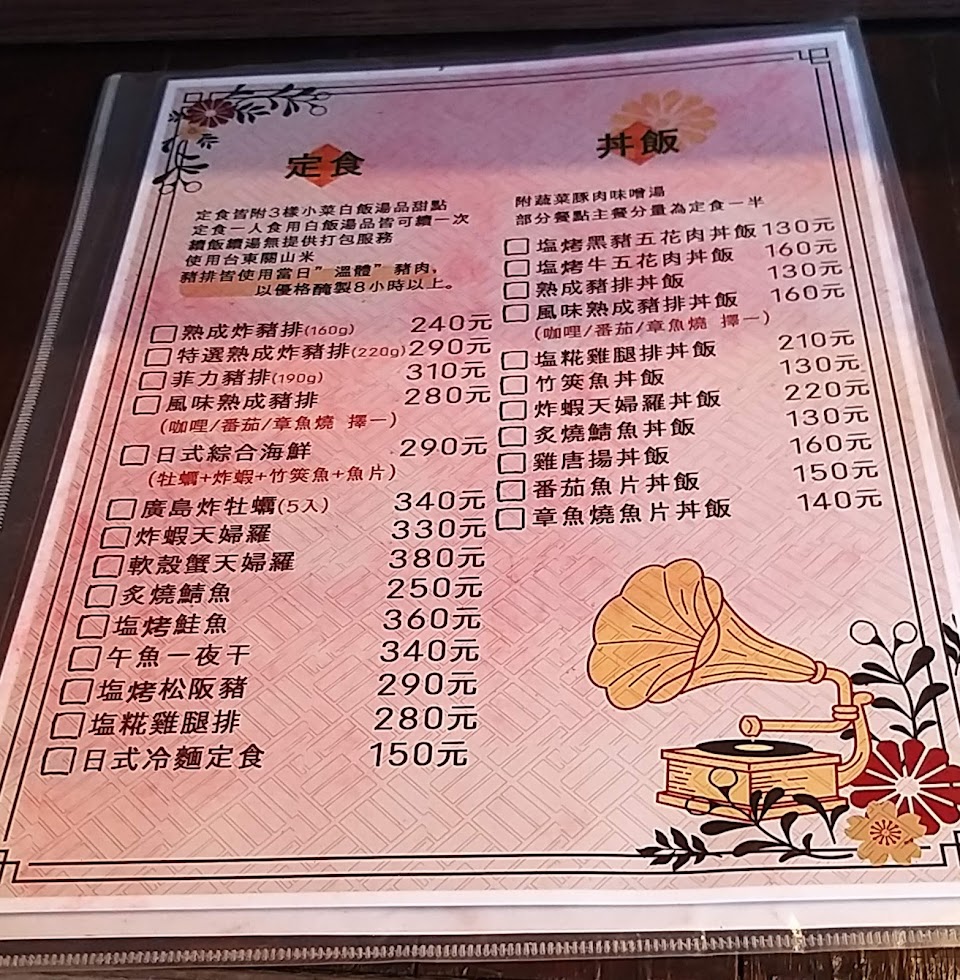 定食
定食皆附3樣小菜白飯湯品甜點
定食一人食用白飯湯品皆可續一次
續飯續湯無提供打包服務
使用台東關山米
豬排皆使用當日”溫體”豬肉，
以優格醃製8小時以上。
熟成炸豬排(160g) 240元
特選熟成炸豬排(220g) 290元
菲力豬排(190g) 310元
風味熟成豬排 280元
(咖哩/番茄/章魚燒 擇一)
日式綜合海鮮 290元
(牡蠣+炸蝦+竹筴魚+魚片)
廣島炸牡蠣(5入) 340元
炸蝦天婦羅 330元
軟殼蟹天婦羅 380元
炙燒鯖魚 250元
塩烤鮭魚 360元
午魚一夜干 340元
塩烤松阪豬 290元
塩糀雞腿排 280元
日式冷麵定食 150元
丼飯
附蔬菜豚肉味噌湯
部分餐點主餐分量為定食一半
塩烤黑豬五花肉丼飯 130元
塩烤牛五花肉丼飯 160元
熟成豬排丼飯 130元
風味熟成豬排丼飯 160元
(咖哩/番茄/章魚燒 擇一)
塩糀雞腿排丼飯 210元
竹筴魚丼飯 130元
炸蝦天婦羅丼飯 220元
炙燒鯖魚丼飯 130元
雞唐揚丼飯 160元
番茄魚片丼飯 150元
章魚燒魚片丼飯 140元